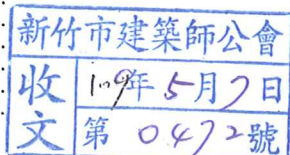 新竹市建築師公會
收文
109年5月7日
第0472號